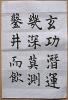 玄功潛運
幾深莫測
鑿井而飲